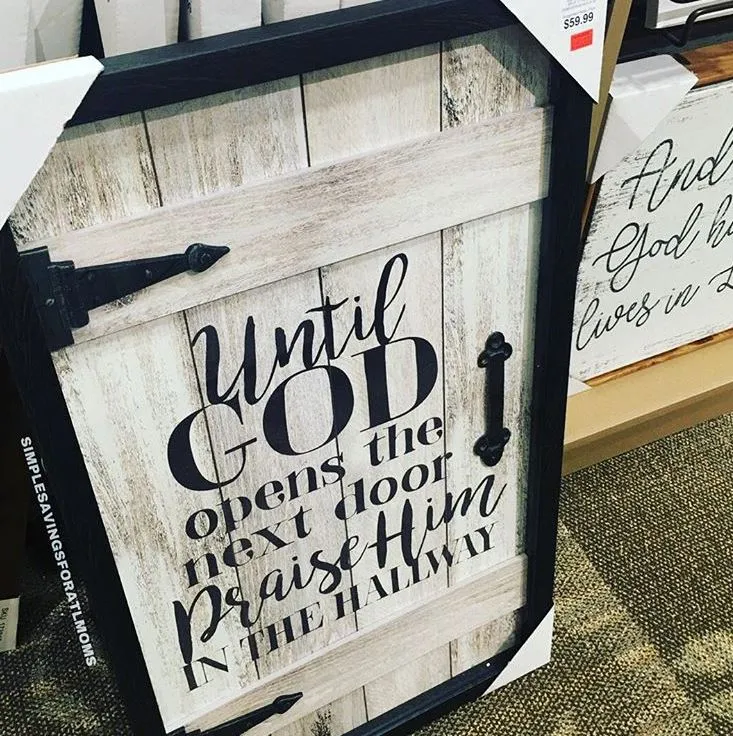 $59.99
Until
GOD
opens the
next door
Praise Him
IN THE HALLWAY
And
God
lives in
SIMPLESAVINGSFORATLMOMS
SKU